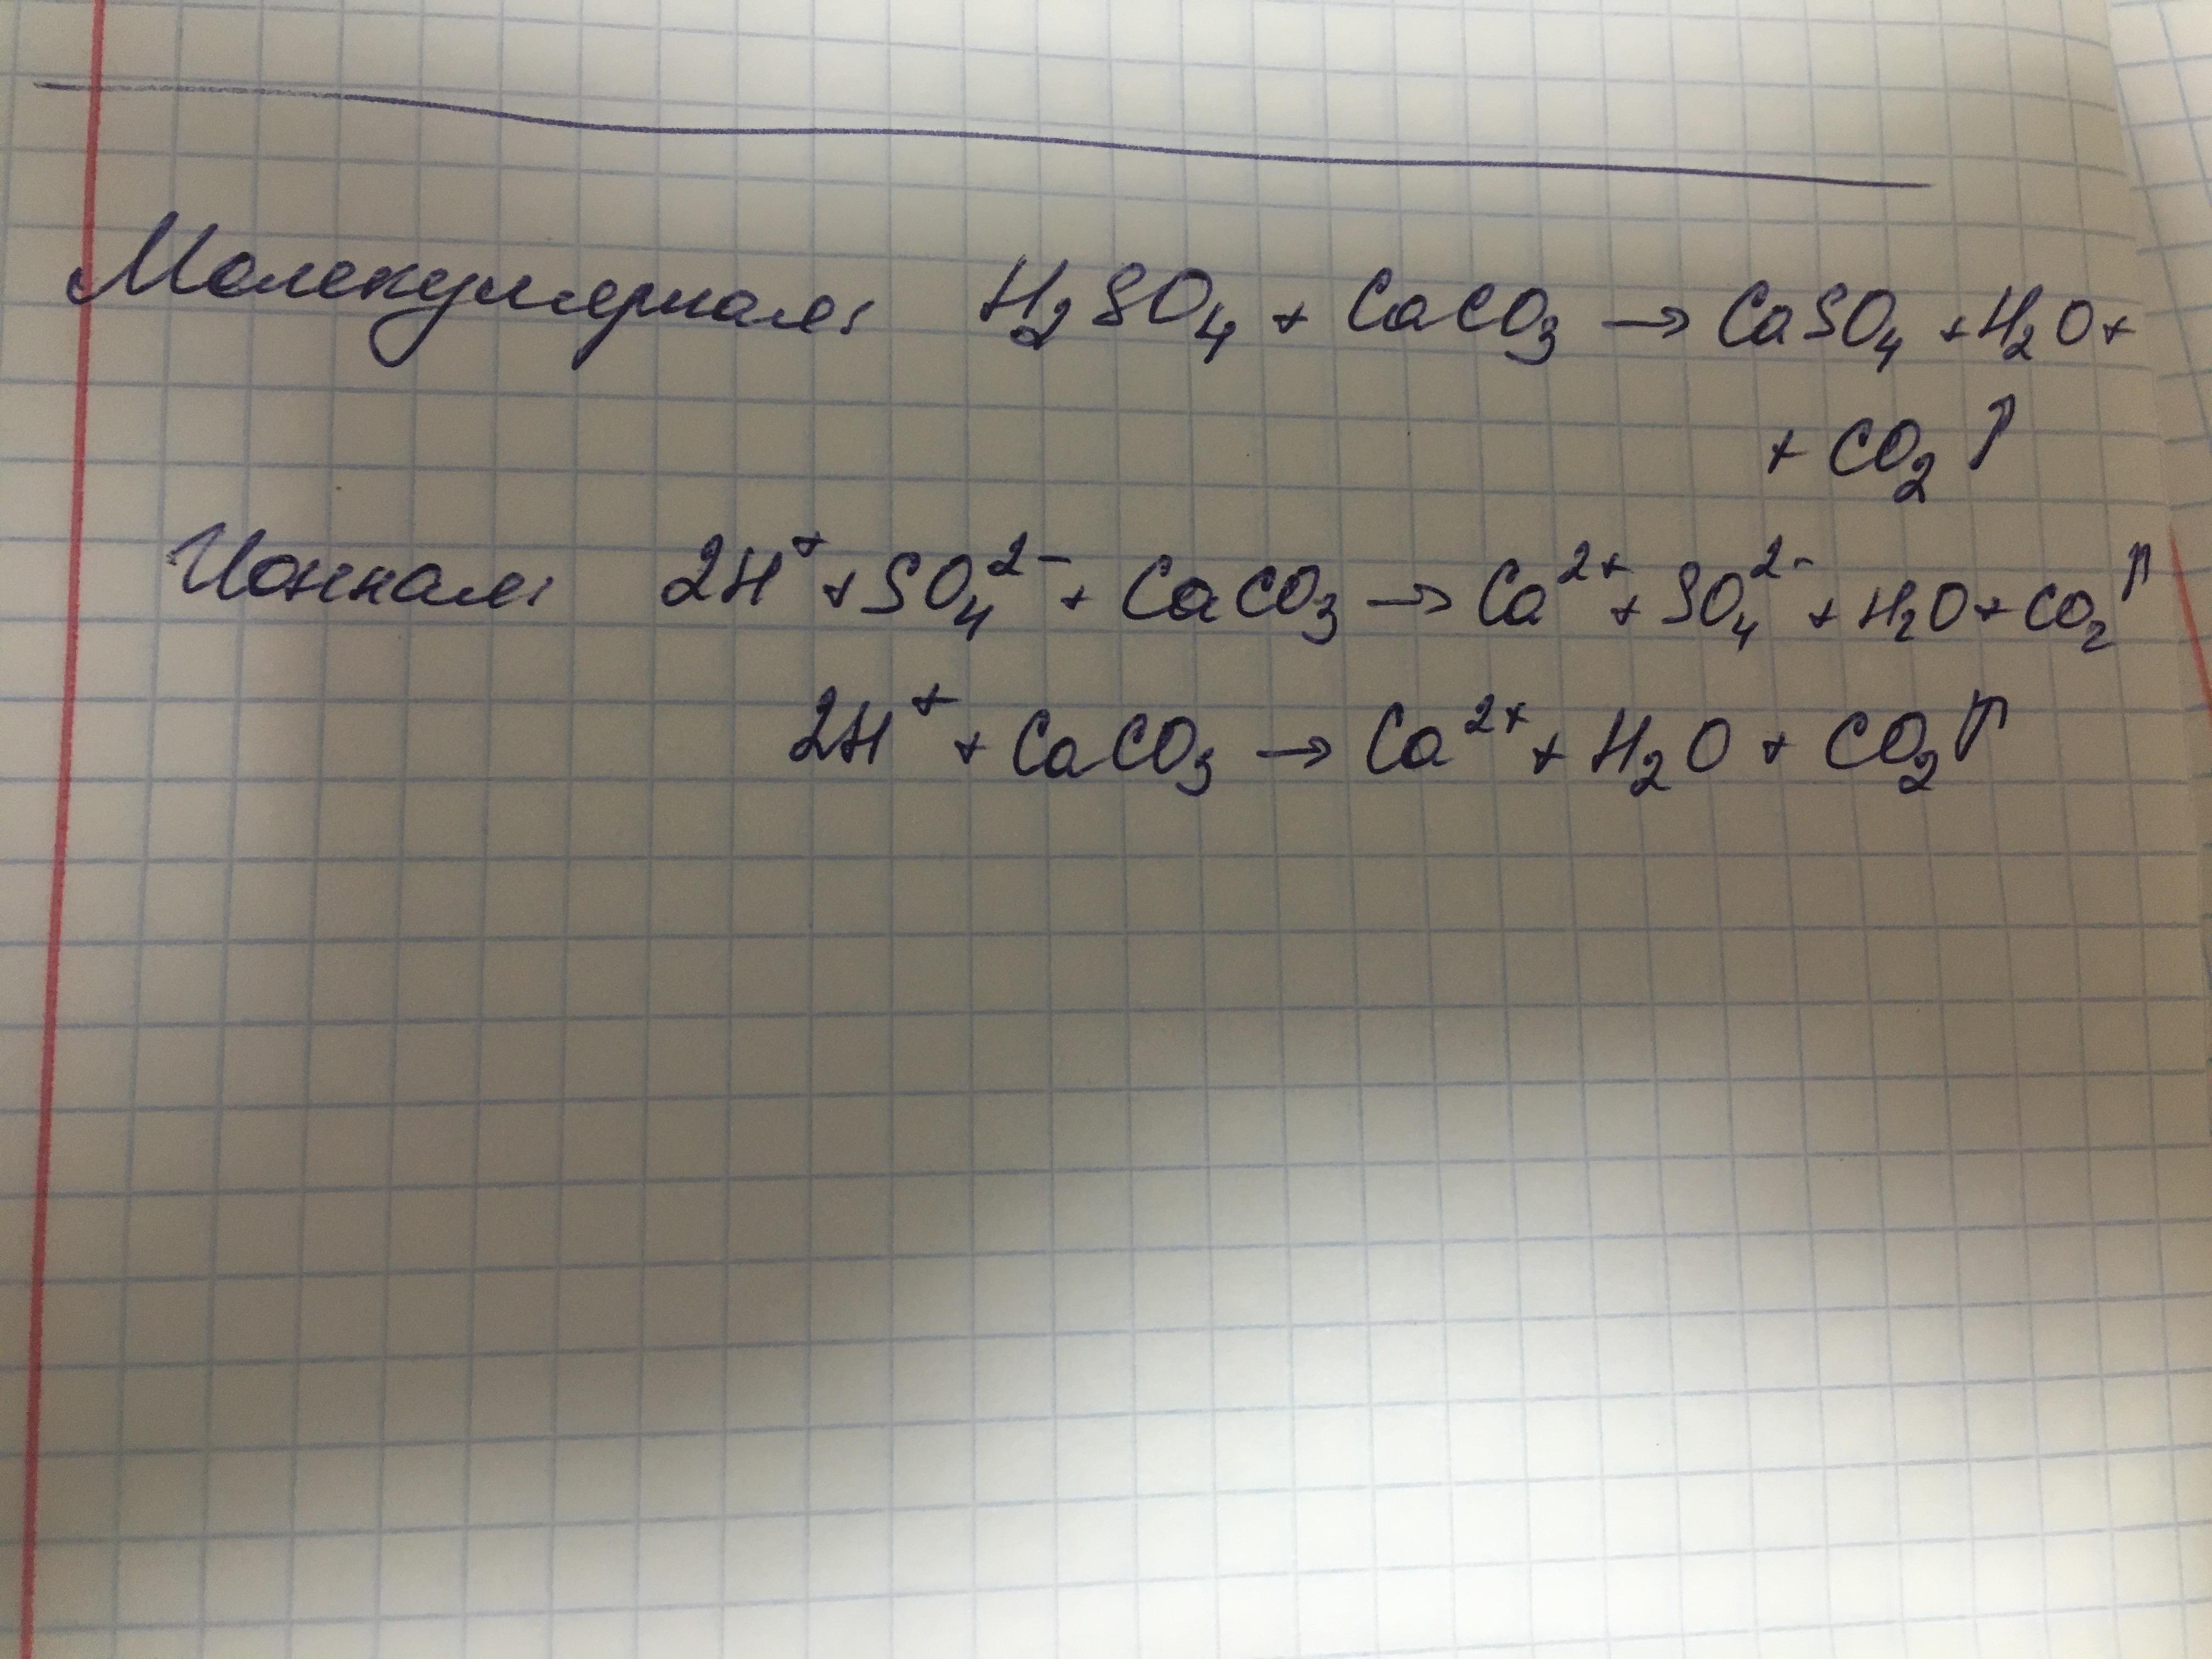 Молекулярная: H₂SO₄ + CaCO₃ → CaSO₄ + H₂O +
+ CO₂ ↑
Ионная: 2H⁺ + SO₄²⁻ + CaCO₃ → Ca²⁺ + SO₄²⁻ + H₂O + CO₂ ↑
2H⁺ + CaCO₃ → Ca²⁺ + H₂O + CO₂ ↑